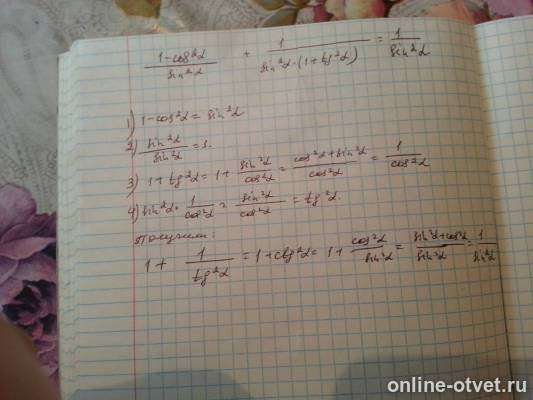 (1-cos²α)/(sin²α) + 1/(sin²α·(1+tg²α)) = 1/(sin²α)
1) 1-cos²α = sin²α
2) sin²α/sin²α = 1.
3) 1+tg²α = 1+ sin²α/cos²α = (cos²α+sin²α)/cos²α = 1/cos²α
4) sin²α · 1/cos²α = sin²α/cos²α = tg²α.
Получим:
1+ 1/tg²α = 1+ctg²α = 1+ cos²α/sin²α = (sin²α+cos²α)/sin²α = 1/sin²α
online-otvet.ru